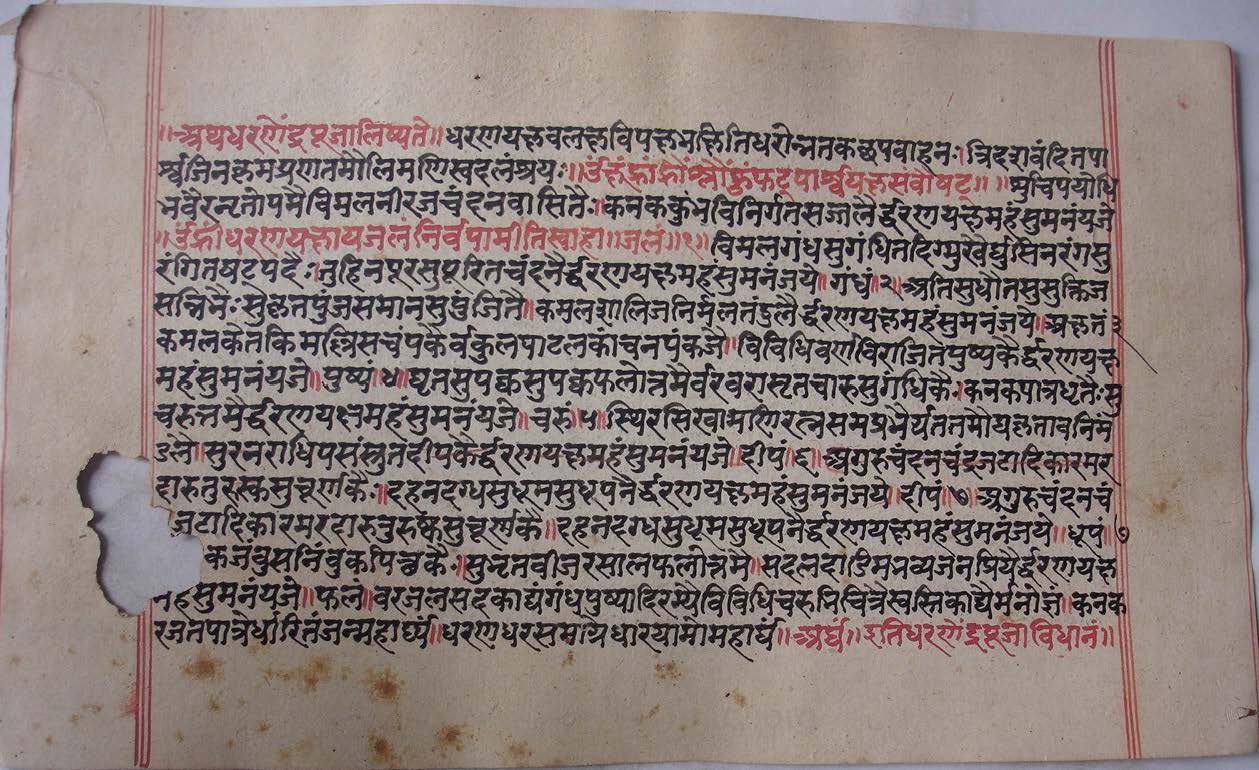 ॥अथधरणेंद्रपूजालिष्यते॥धरणयक्षवलक्षविपक्षभक्षितिधरोन्नतकछपवाहनः।त्रिदशवंदितपा
र्श्वजिनक्रमप्रणतमौलिमणिस्वदलंश्रय॥ पार्श्वयक्षसंवौषट्॥ ॥शुचिपयोधि
भवैरमृतोपमैर्विमलनीरजचंदनवासितैः।कनककुंभविनिर्गतसज्जलैर्द्धरणयक्षमहंसुमनंयजे
॥उँह्रीधरणयक्षायजलंनिर्वपामीतिस्वाहा॥जलं॥१॥विमलगंधसुगंधितदिग्मुखै रंगसु
रंगितषट्पदैः।तुहिनपूरसुपूरितचंदनैर्द्धरणयक्षमहंसुमनंजये॥गंधं॥२॥अतिसुधौतसुसुक्तिज
सन्निभैःसुकृतपुंजसमानसुपुंजितै॥कमलशालिजनिर्मलतंदुलैर्द्धरणयक्षमहंसुमनंजये॥अक्षतं३
कमलकेतकिमश्रिसचंपकैर्वकुलपाटलकांचनपंकजै॥विविधिवर्णविराजितपुष्पकैर्द्धरणयक्ष
महंसुमनंयजे॥पुष्पं॥४॥घृतसुपक्कसुपक्कफलोत्तमैर्वरवरामृतचारुसुगंधिकैः।कनकपात्रधृतैःसु
चरुत्तमैर्द्धरणयक्षमहंसुमनंयजे॥चरुं॥५॥स्थिरसिखामणिरत्नसमप्रभैर्य
सुरनराधिपसंस्तुतदीपकैर्द्धरणयक्षमहंसुमनंयजे॥दीपं॥६॥अगुरुचंदनचंद्रजटादिकारमर
दारुतुरुस्कसुचूर्णकैः॥दहनदग्धसुधूमसुधूपनैर्द्धरणयक्षमहंसुमनंजये॥दीपं॥७॥अगुरुचंदनचं
जटादिकारमरदारुतुरुष्कसुचूर्णकै॥दहनदग्धसुधूमसुधूपनैर्द्धरणयक्षमहंसुमनंजये॥धूपं॥७
कजंवुसनिंवुकपिच्छकैः॥सुनृतवीजरसालफलोत्तमै॥सदलदाडिम प्रियैर्द्धरणयक्ष
महंसुमनंयजे॥फलं॥वरजलसदकाद्यंगंधपुष्पादिरम्यैविविधिचरुविचित्रैस्वस्तिकाद्यैर्मनोज्ञं॥कनक
रजतपात्रैर्धारितंजन्महार्घ्यं॥धरणधरसमायैधारयामोमहार्घं॥अर्घं॥इतिधरणेंद्रपूजाविधानं॥